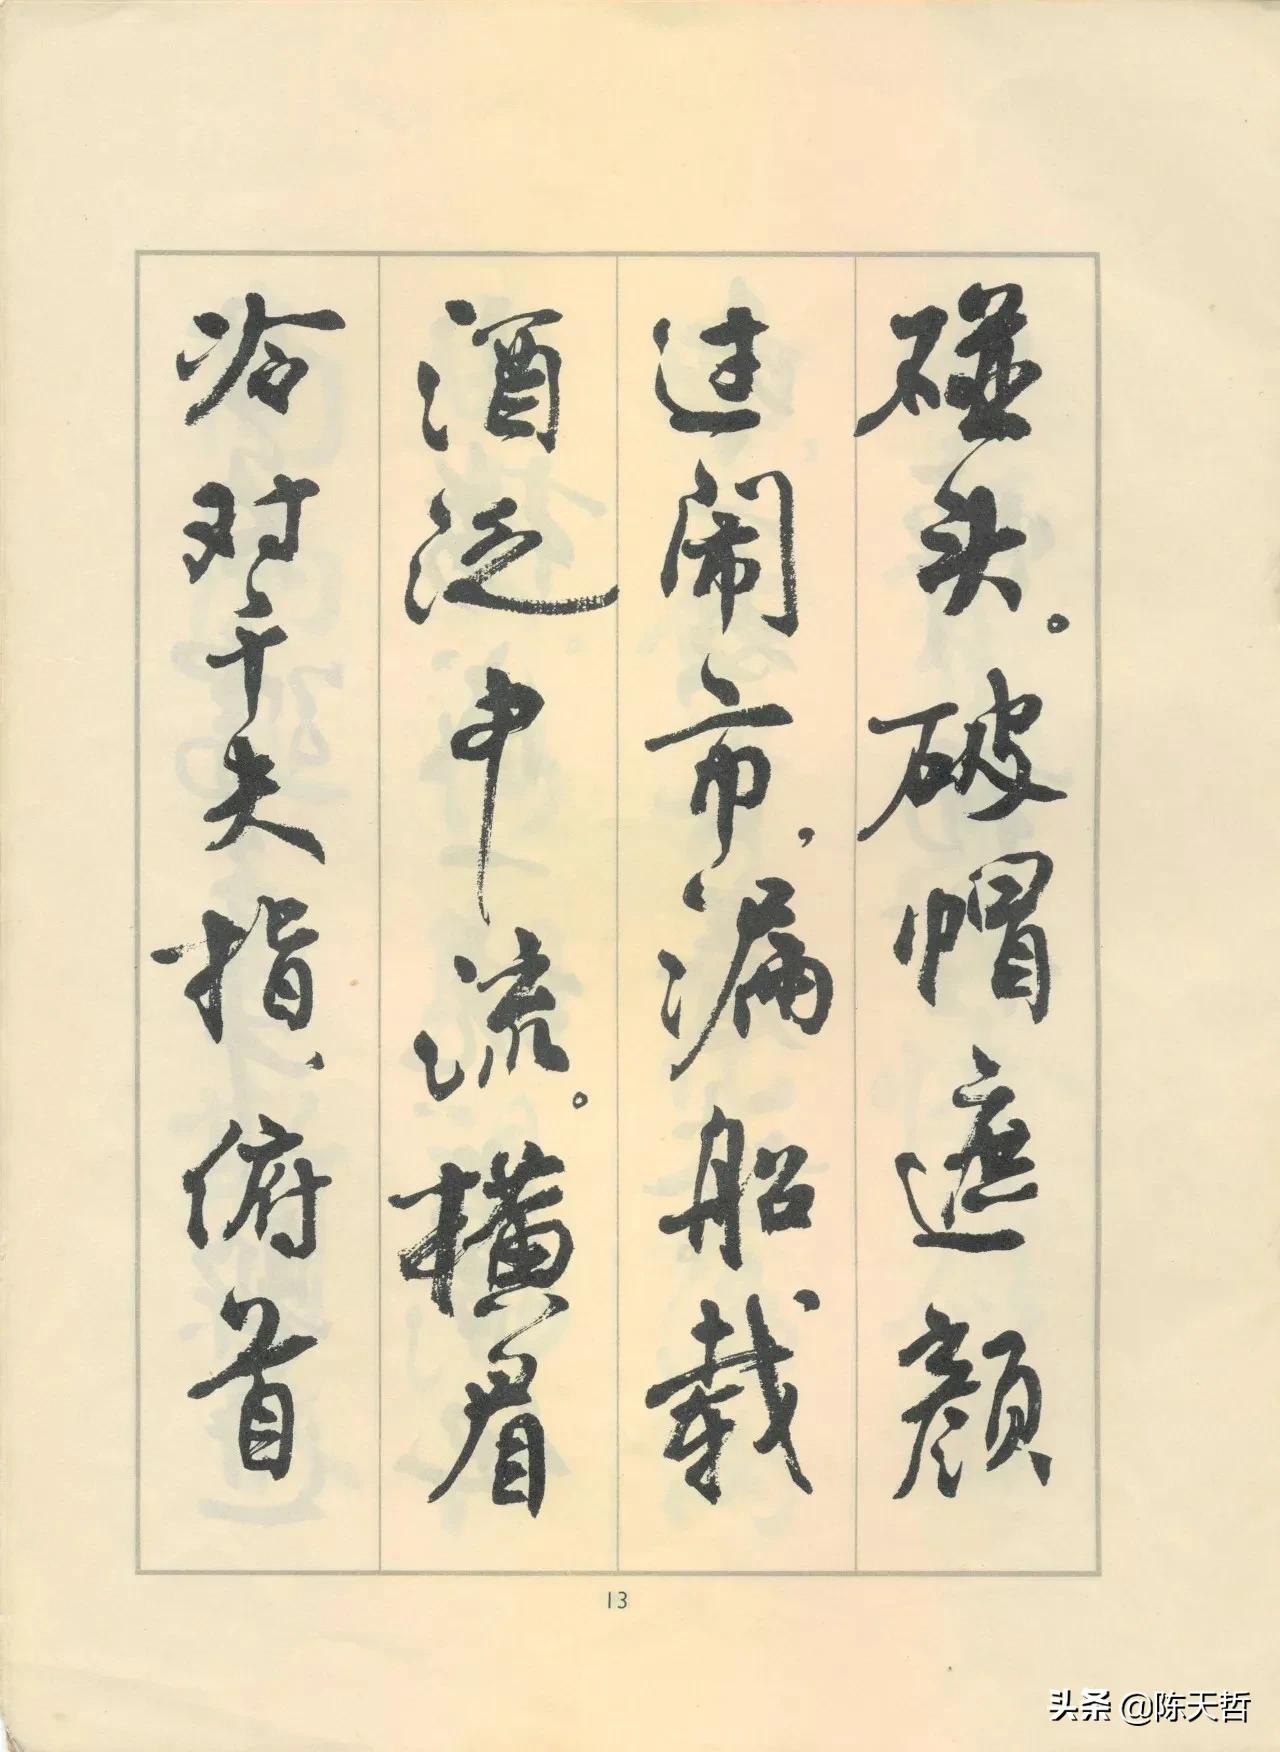 碰头。破帽遮颜
过闹市,漏船载
酒泛中流。横眉
冷对千夫指,俯首
13
头条 @陈天哲